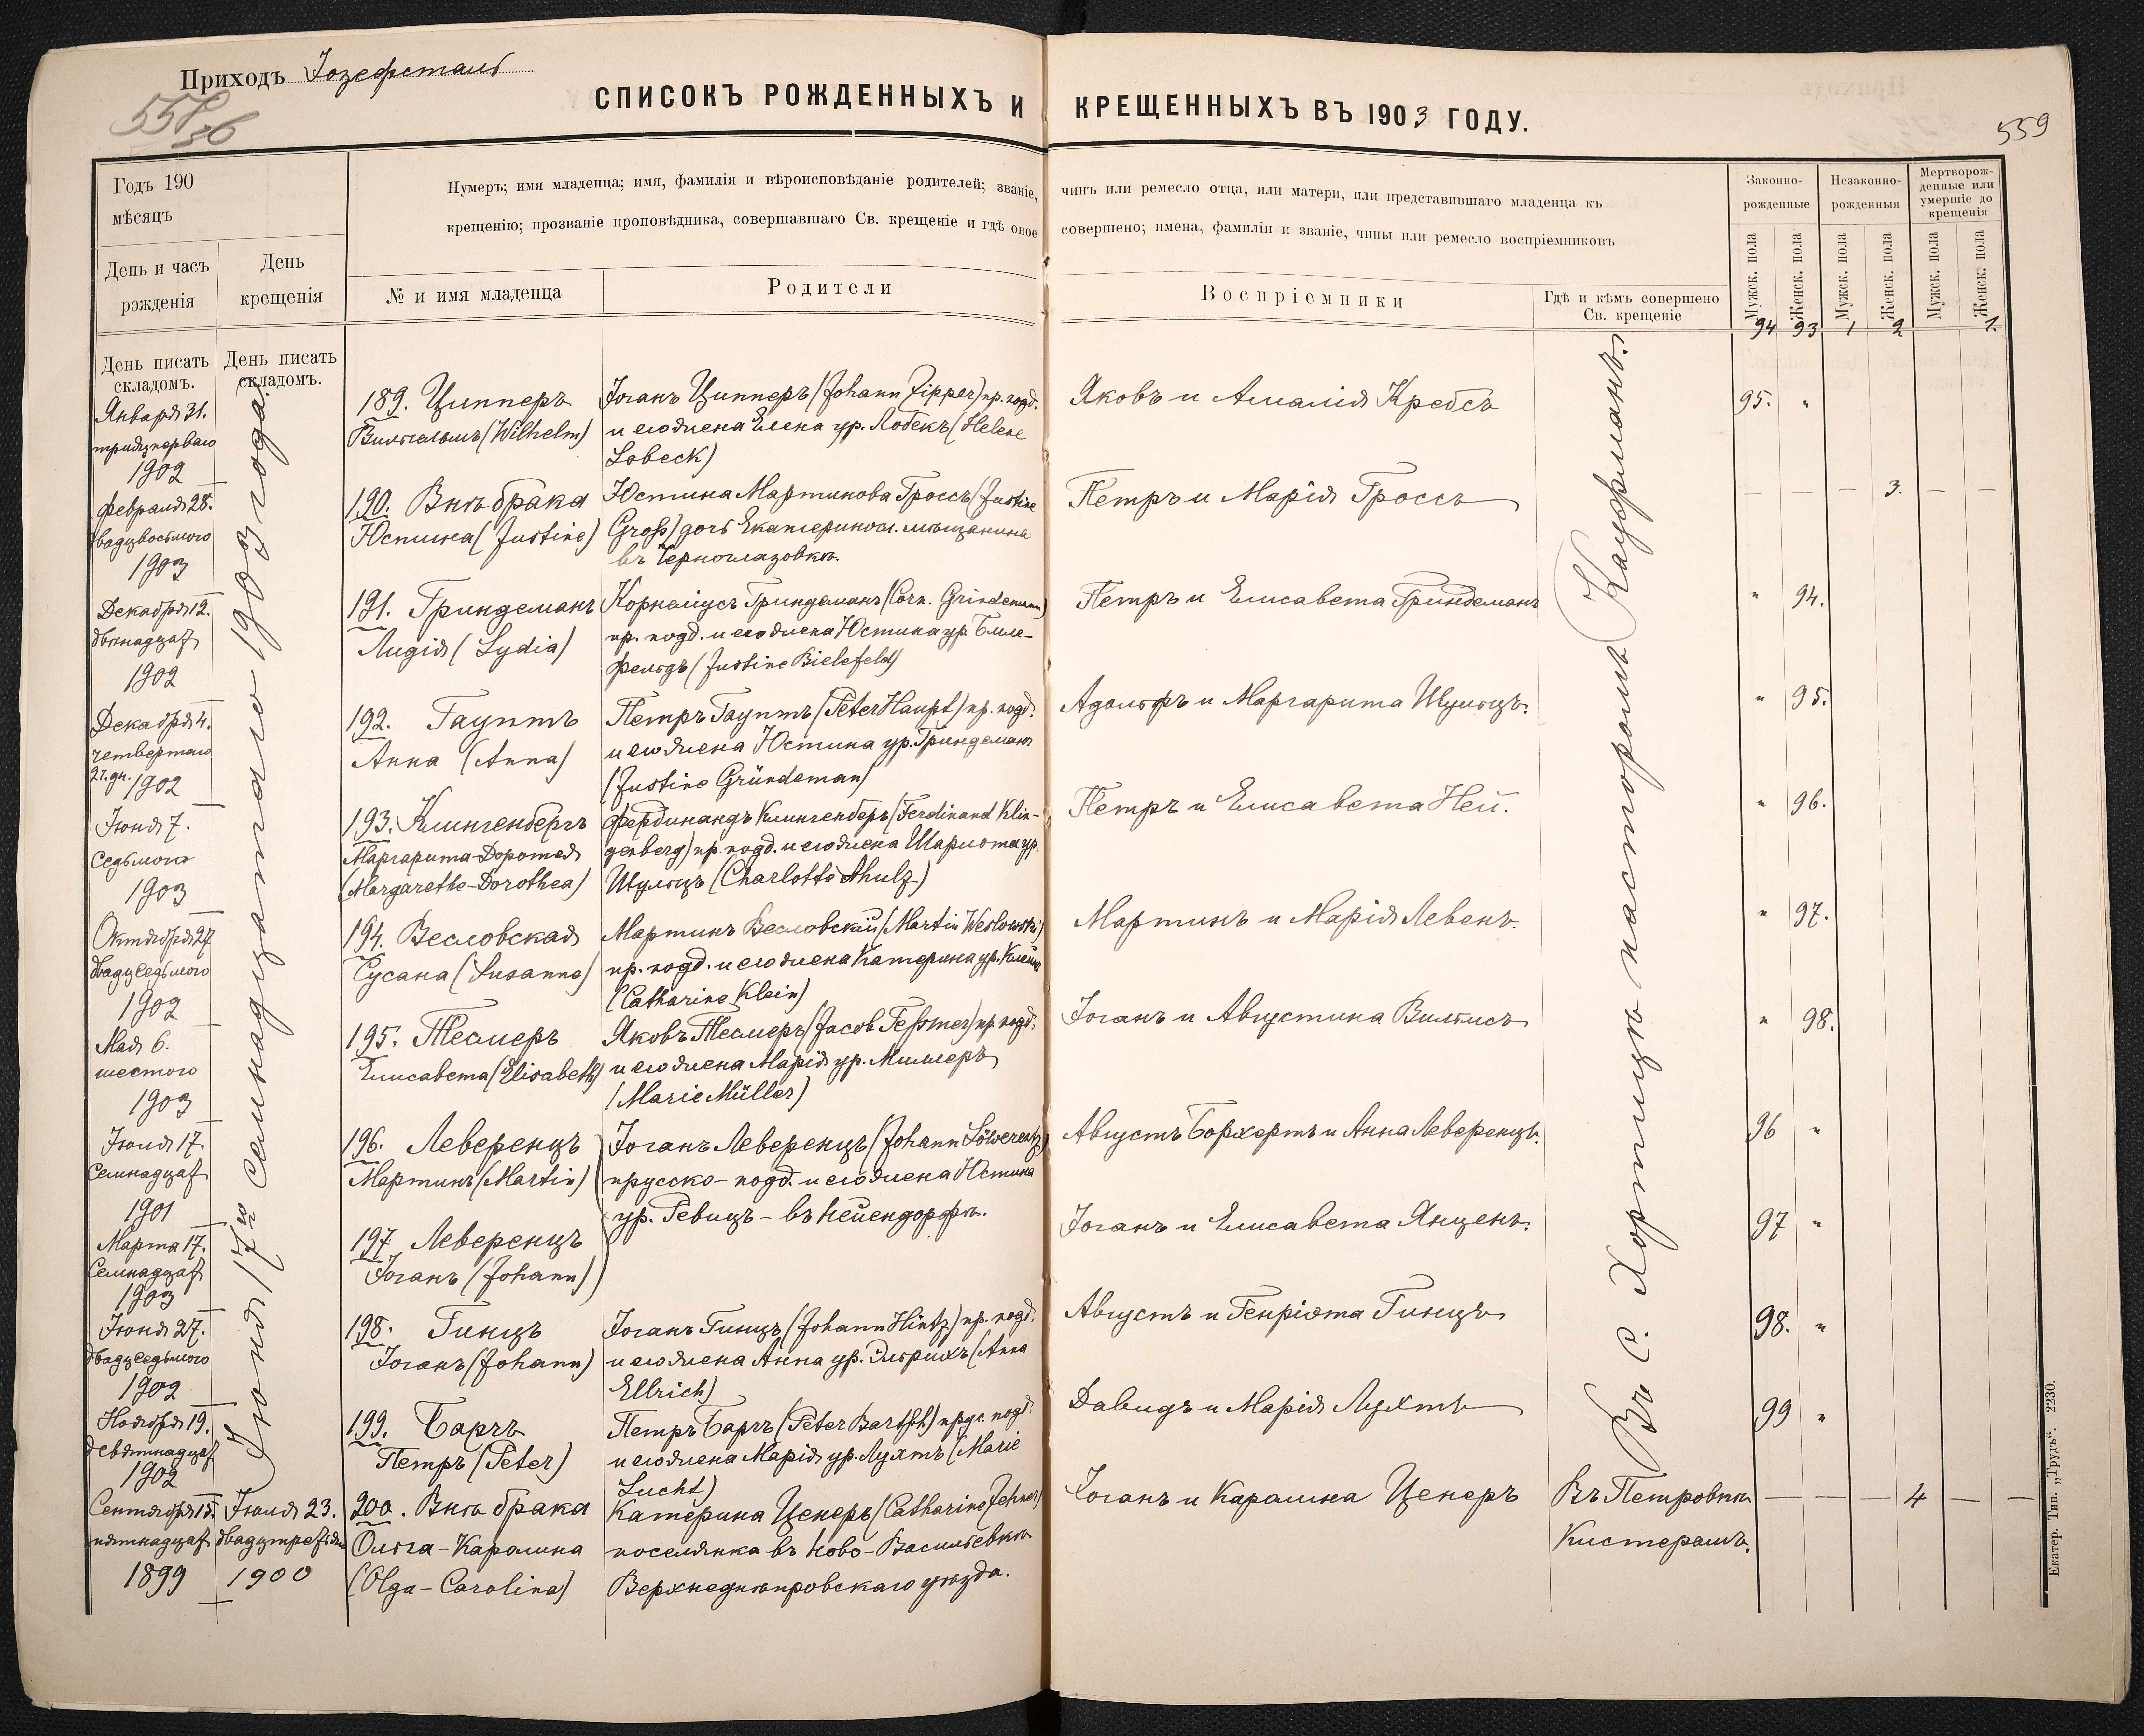 Приходъ Іозефсталь
558
56
СПИСОКЪ РОЖДЕННЫХЪ И КРЕЩЕННЫХЪ ВЪ 1903 ГОДУ.
559
Годъ 190
мѣсяцъ
День и часъ рожденія
День крещенія
Нумеръ; имя младенца; имя, фамилія и вѣроисповѣданіе родителей; званіе, чинъ или ремесло отца, или матери, или представившаго младенца къ
крещенію; прозваніе проповѣдника, совершавшаго Св. крещеніе и гдѣ оное совершено; имена, фамиліи и званіе, чины или ремесло воспріемниковъ
№ и имя младенца
Родители
Воспріемники
Гдѣ и кѣмъ совершено
Св. крещеніе
Законно-
рожденные
Незаконно-
рожденныя
Мертворож-
денные или
умершіе до
крещенія
Мужск. пола
Женск. пола
Мужск. пола
Женск. пола
Мужск. пола
Женск. пола
94 93 1 2 1.
День писать
складомъ.
День писать
складомъ.
Іюня 17го семнадцатаго 1903 года.
Въ с. Хортицѣ пасторомъ Кауфманъ.
Января 31.
тридцперваго
1902
189.Ципперъ
Вильгельмъ (Wilhelm)
ІоганъЦипперъ (Johann Zipper) пр. подд.
и его жена Елена ур. Лобекъ (Helene
Lobeck)
Яковъ и Амалія Кребсъ
95. "
Февраля 28.
двадцвосьмого
1903
190. Внѣ брака
Юстина (Justine)
Юстина Мартинова Гроссъ (Justine
Groß) дочь Екатериносл. мѣщанина
въ Черноглазовкѣ.
Петръ и Марія Гроссъ
— — — 3. — —
Декабря 12.
двѣнадцат
1902
191. Гриндеманъ
Лидія (Lydia)
Корнеліусъ Гриндеманъ (Corn. Grindemann)
пр. подд. и его жена Юстина ур. Биле-
фельдъ (Justine Bielefeld)
Петръ и Елисавета Гриндеманъ
" 94.
Декабря 4.
четвертаго
1902
192. Гауптъ
Анна (Anna)
Петръ Гауптъ (Peter Haupt) пр. подд.
и его жена Юстина ур. Гриндеманъ
(Justine Gründeman)
Адольфъ и Маргарита Шульцъ.
" 95.
Іюня 7.
седьмого
1903
193. Клингенбергъ
Маргарита-Доротея
(Margarethe-Dorothea)
Фердинандъ Клингенбергъ (Ferdinand Klin-
genberg) пр. подд. и его жена Шарлота ур.
Шульцъ (Charlotte Schulz)
Петръ и Елисавета Ней.
" 96.
Октября 27
двадцседьмого
1902
194. Весловская
Сусана (Susanna)
Мартинъ Весловскій (Martin Weslowski)
пр. подд. и его жена Катерина ур. Клейнъ
(Catharine Klein)
Мартинъ и Марія Левенъ.
" 97.
Мая 6.
шестого
1903
195. Тесмеръ
Елисавета (Elisabeth)
Яковъ Тесмеръ (Jacob Teßmer) пр. подд.
и его жена Марія ур. Миллеръ
(Marie Müller)
Іоганъ и Августина Вильмсъ
" 98.
Іюля 17.
семнадцат
1901
196. Леверенцъ
Мартинъ (Martin)
Іоганъ Леверенцъ (Johann Löwerentz)
прусско-подд. и его жена Юстина
ур. Ревицъ – въ Нейендорфѣ.
Августъ Борхертъ и Анна Леверенцъ.
96 "
Марта 17.
семнадцат
1903
197. Леверенцъ
Іоганъ (Johann)
Іоганъ и Елисавета Янценъ.
97 "
Іюня 27.
двадцседьмого
1902
198. Гинцъ
Іоганъ (Johann)
Іоганъ Гинцъ (Johann Hintz) пр. подд.
и его жена Анна ур. Эльрихъ (Anna
Ellrich)
Августъ и Генріэта Гинцъ
98. "
Ноября 19.
девятнадцат
1902
199. Барчъ
Петръ (Peter)
Петръ Барчъ (Peter Bartsch) прус. подд.
и его жена Марія ур. Лухтъ (Marie
Lucht)
Давидъ и Марія Лухтъ
99 "
Сентября 15.
пятнадцат
1899
Іюля 23.
двадцтретьяго
1900
200. Внѣ брака
Ольга-Каролина
(Olga-Carolina)
Катерина Ценеръ (Catharine Zehner)
поселянка въ Ново-Васильевкѣ
Верхнеднѣпровскаго уѣзда.
Іоганъ и Каролина Ценеръ
Въ Петровкѣ
Кистеромъ.
— — — 4 — —
Екатер. Тип. „Трудъ“. 2230.